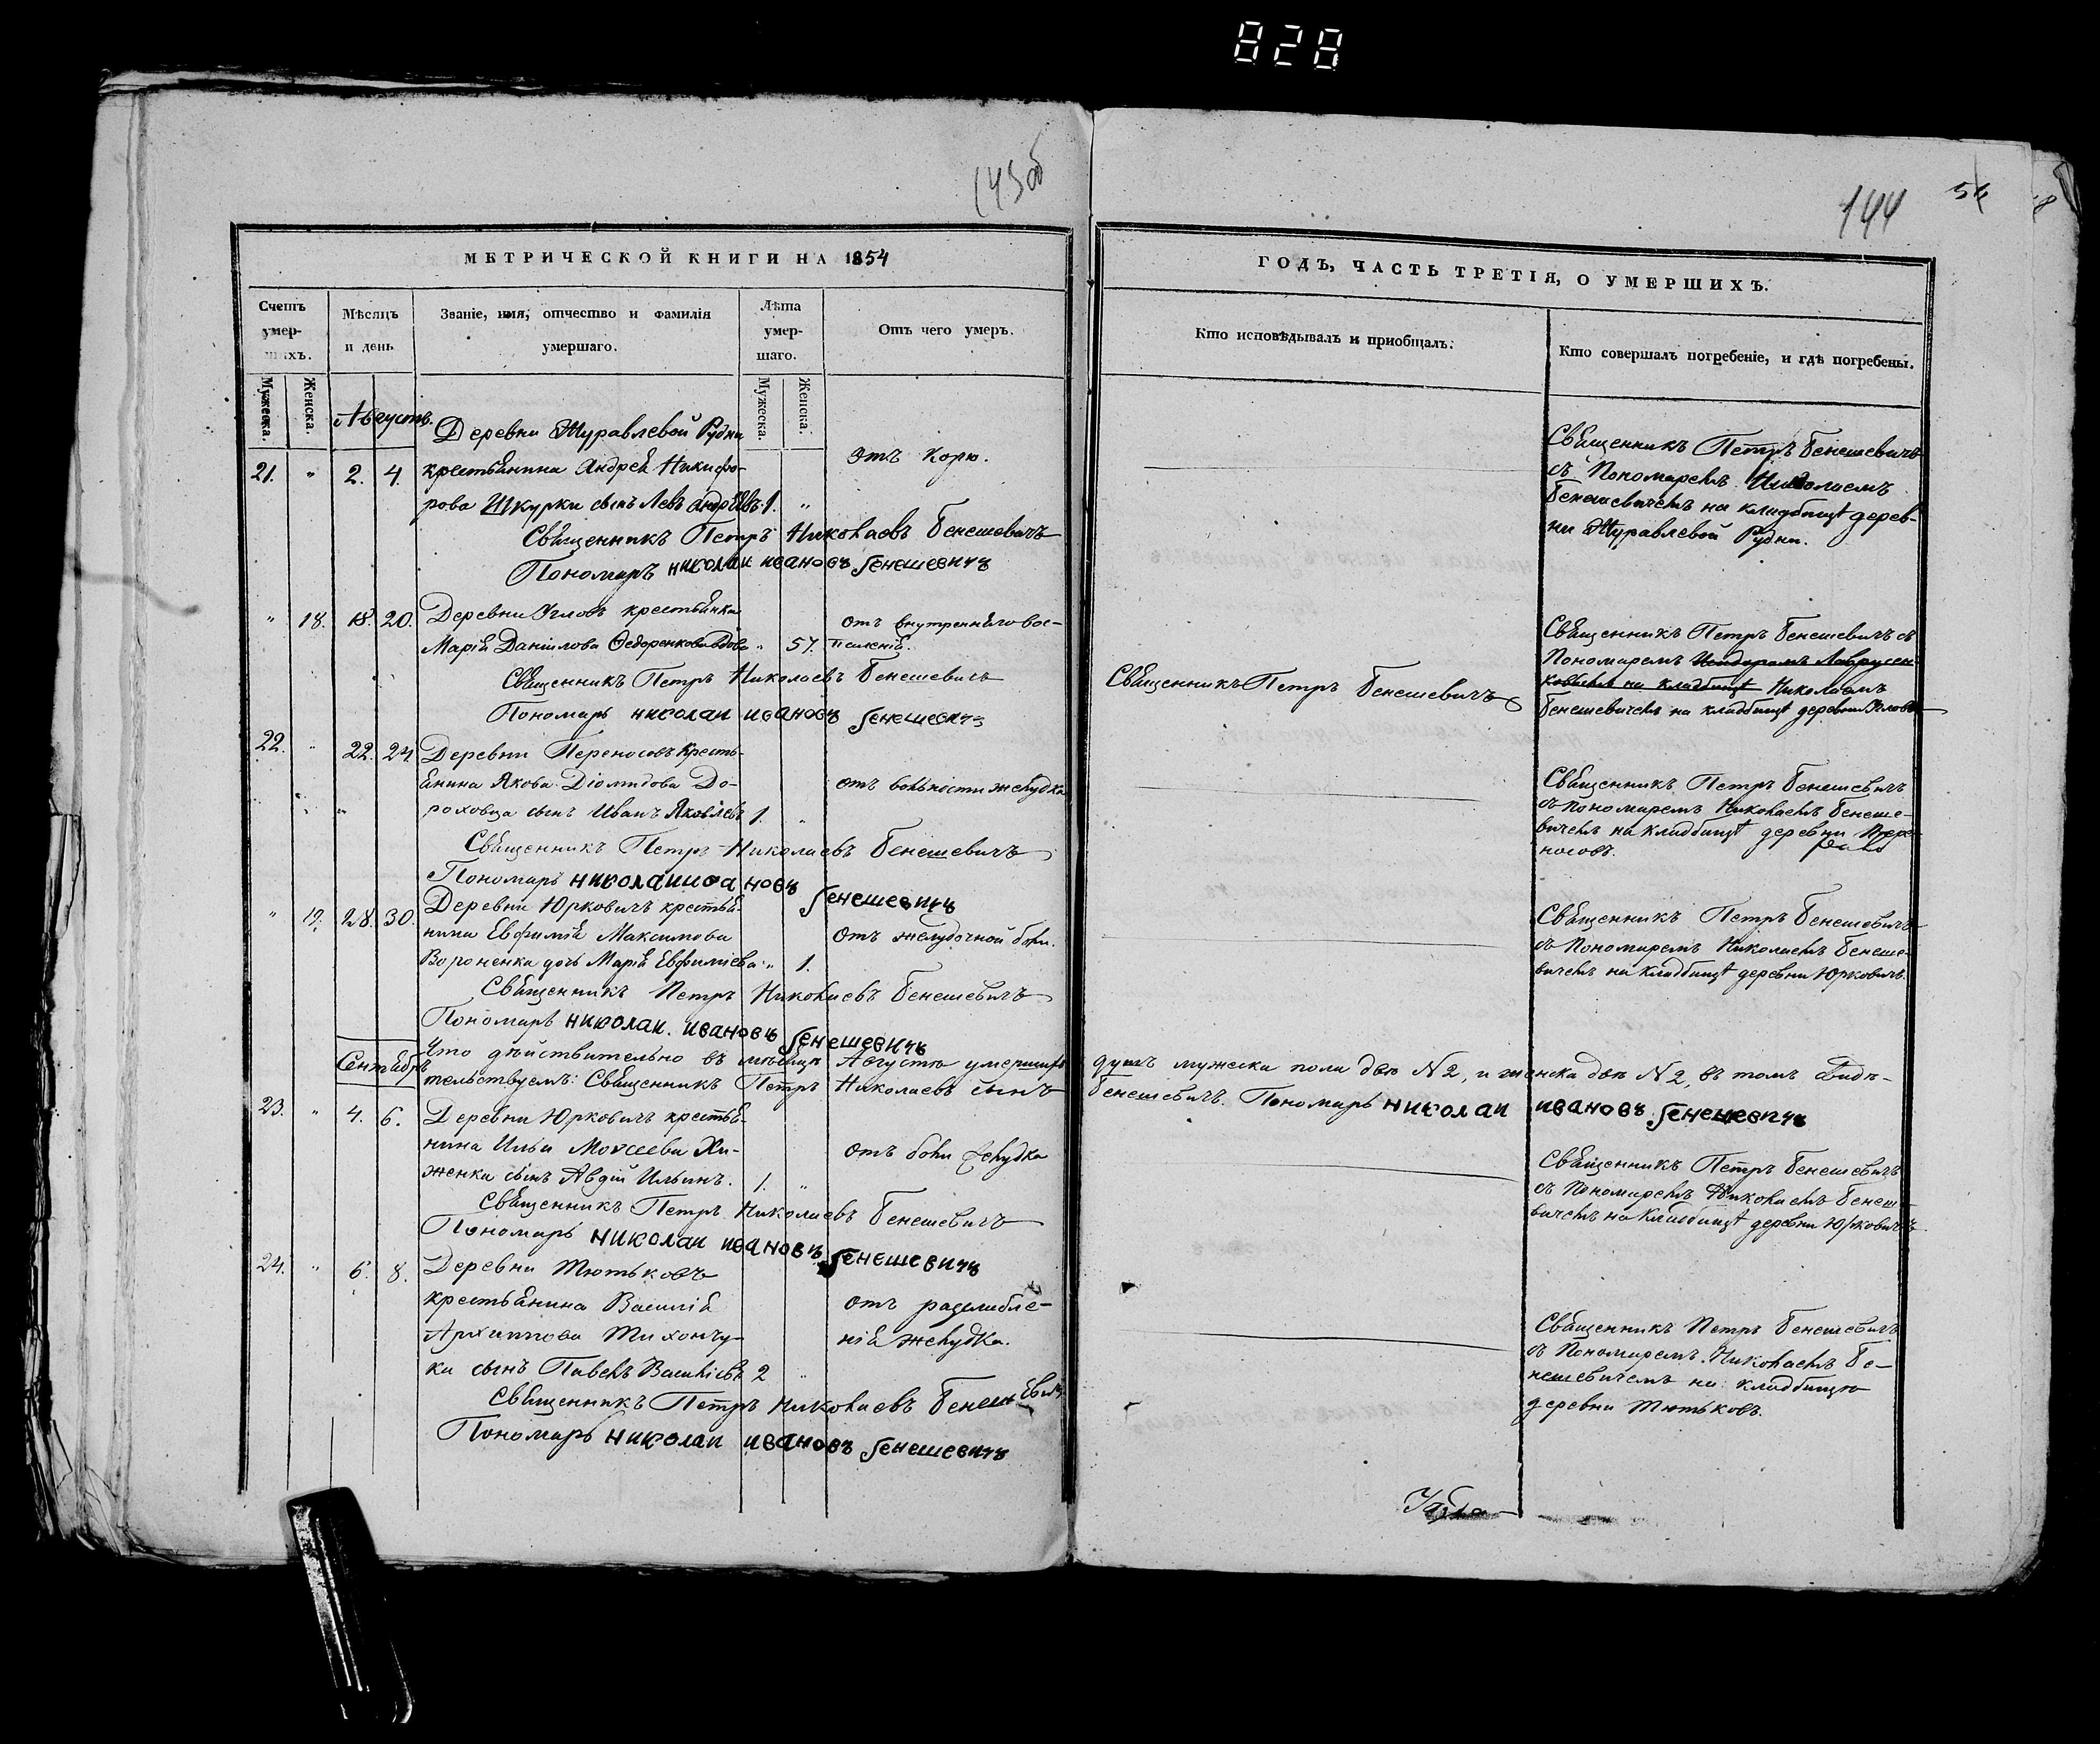 828
143об
144
54
МЕТРИЧЕСКОЙ КНИГИ НА 1854
ГОДЪ, ЧАСТЬ ТРЕТІЯ, О УМЕРШИХЪ.
Счетъ умер-шихъ.
Мѣсяцъ и день
Званіе, имя, отчество и фамилія умершаго.
Лѣта умер-шаго.
Отъ чего умеръ.
Кто исповѣдывалъ и приобщалъ.
Кто совершалъ погребеніе, и гдѣ погребены.
Мужеска.
Женска.
Мужеска.
Женска.
Августъ.
Деревни Журавлевой Рудни
21. " 2. 4. крестьянина Андрея Никифо-
рова Шкурки сынъ Левъ Андреевъ 1. "
отъ корю.
Священникъ Петръ Бенешевичъ
съ Пономаремъ Николаемъ
Бенешевичемъ на кладбищѣ дерев-
ни Журавлевой Рудни.
Священникъ Петръ Николаевъ Бенешевичъ
Пономарь николаи ивановъ бенешевичъ
" 18. 18. 20. Деревни Угловъ крестьянка
Марія Даніилова Ѳедоренкова вдова " 57.
отъ внутренняго вос-
паленія.
Священникъ Петръ Бенешевичъ
Священникъ Петръ Бенешевичъ съ
Пономаремъ Исидоромъ Лаврусен
ковымъ на кладбищѣ Николаемъ
Бенешевичемъ на кладбищѣ деревни Угловъ
Священникъ Петръ Николаевъ Бенешевичъ
Пономарь николаи ивановъ бенешевичъ
22. " 22. 24 Деревни Переносовъ кресть-
янина Якова Діомидова До-
роховца сынъ Иванъ Яковлевъ 1. "
отъ больности желудка
Священникъ Петръ Бенешевичъ
съ Пономаремъ Николаемъ Бенеше-
вичемъ на кладбищѣ деревни Пере-
носовъ.
Священникъ Петръ Николаевъ Бенешевичъ
Пономарь николаи ивановъ бенешевичъ
" 19. 28. 30. Деревни Юрковичъ крестья-
нина Евфимія Максимова
Вороненка дочь Марія Евфиміева " 1.
отъ желудочной боли.
Священникъ Петръ Бенешевичъ
съ Пономаремъ Николаемъ Бенеше-
вичемъ на кладбищѣ деревни Юрковичъ.
Священникъ Петръ Николаевъ Бенешевичъ
Пономарь николаи. ивановъ бенешевичъ
Что дѣйствительно въ мѣсяцѣ Августѣ умершихъ душъ мужеска пола двѣ №2, и женска двѣ №2, въ томъ свидѣ-
тельствуемъ: Священникъ Петръ Николаевъ сынъ Бенешевичъ. Пономарь николаи ивановъ бенешевичъ
Сентябрь
23. " 4. 6. Деревни Юрковичъ крестья-
нина Ильи Моѵсеева Хи-
женка сынъ Авдій Ильинъ. 1. "
отъ боли желудка
Священникъ Петръ Бенешевичъ
съ Пономаремъ Николаемъ Бенеш-
вичемъ на кладбищѣ деревни Юрковичъ
Священникъ Петръ Николаевъ Бенешевичъ
Пономарь николаи ивановъ бенешевичъ
24. " 6. 8. Деревни Тютьковъ
крестьянина Василія
Архиппова Тихончу-
ка сынъ Павелъ Васильевъ 2 "
отъ разслабле-
нія желудка.
Священникъ Петръ Бенешевичъ
съ Пономаремъ Николаемъ Бе-
нешевичемъ на кладбищѣ
деревни Тютьковъ.
Священникъ Петръ Николаевъ Бенешевичъ
Пономарь николаи ивановъ бенешевичъ